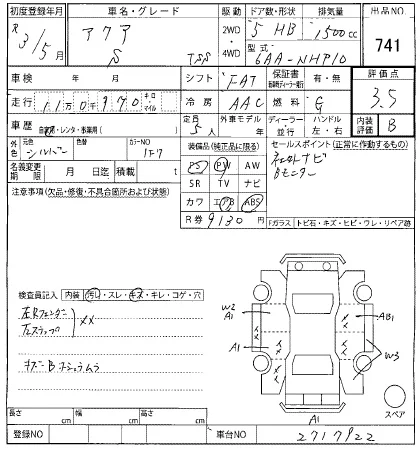 初度登録年月 車名・グレード 駆動 ドア数・形状 排気量 出品NO
R 3/5月 アクア S TSS 2WD ・ 4WD 5 HB 1500cc 741
型式 6AA-NHP10
車検 年 月 シフト FAT 保証書 有・無 評価点
走行 11万0千970 キロ・マイル 冷房 AAC 燃料 G 3.5
車歴 自家用・レンタ・事業用( ) 定員 5人 外車モデル 年 ディーラー・並行 ハンドル 左・右 内装評価 B
外色 元色 シルバー 色替 カラーNO 1F7 装備品(純正品に限る) セールスポイント(正常に作動するもの)
名義変更期限 月 日迄 積載 t PS PW AW
注意事項(欠品・修復・不具合箇所および状態) SR TV ナビ Bモニター
カワ エアB ABS
R券 9130 円 Fガラス トビ石・キズ・ヒビ・ワレ・リペア跡
検査員記入 内装 汚れ・スレ・キズ・キレ・コゲ・穴
左Rフェンダー
左ステップ XX
W2 A1 AB1
A1 W3
スペア
長さ cm 幅 cm 高さ cm A1
登録NO 車台NO 2717922